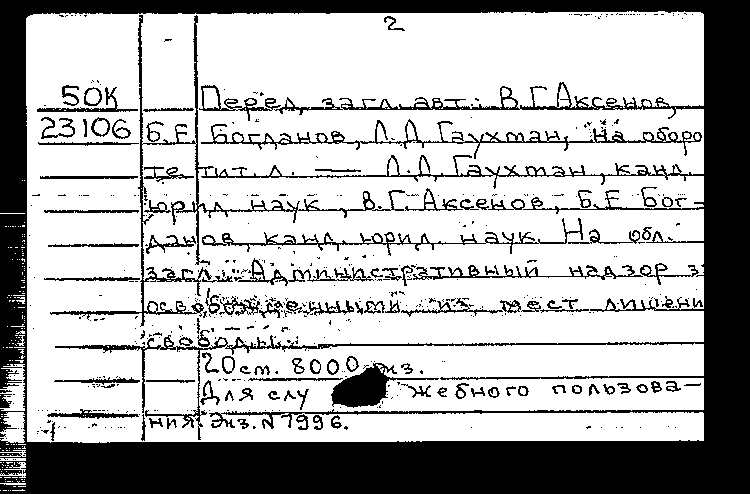 2
50К Перед загл. авт.: В.Г.Аксенов,
23106 Б.Е. Богданов, Л.Д. Гаухман, На оборо
те тит. л. — Л.Д. Гаухман, канд.
юрид. наук, В.Г. Аксенов, Б.Е Бог-
данов, канд. юрид. наук. На обл.
загл.: Административный надзор з
освобожденными из мест лишени
свободы.
20 см. 8000 экз.
Для слу жебного пользова-
ния. Экз. N 7996.